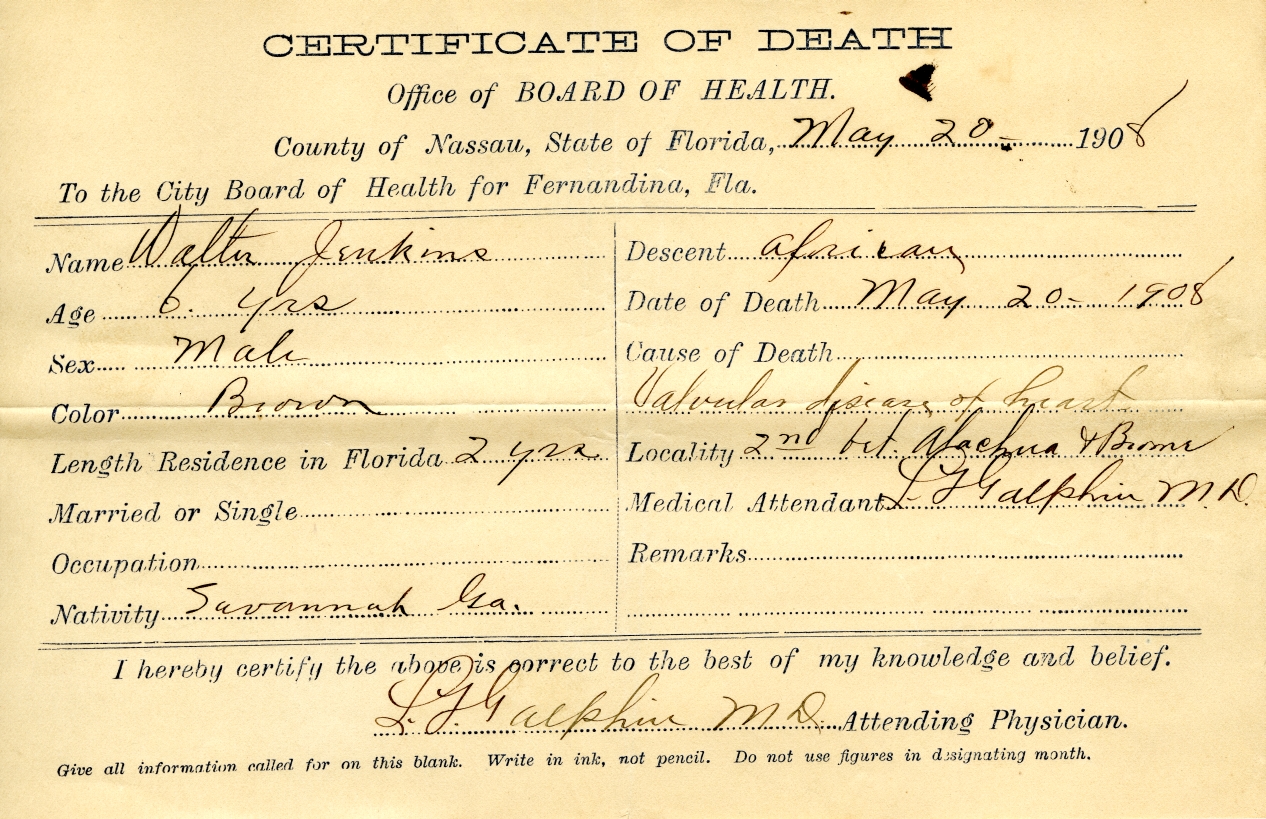 CERTIFICATE OF DEATH
Office of BOARD OF HEALTH.
County of Nassau, State of Florida, May 20- 1908
To the City Board of Health for Fernandina, Fla.
Name Walter Jenkins
Age 6. yrs
Sex Male
Color Brown
Length Residence in Florida 2 yrs
Married or Single
Occupation
Nativity Savannah Ga.
Descent African
Date of Death May 20- 1908
Cause of Death
Valvular disease of heart
Locality 2nd bet. Alachua & Broome
Medical Attendant L. G. Galphin M.D.
Remarks
I hereby certify the above is correct to the best of my knowledge and belief.
Galphin M.D. Attending Physician.
Give all information called for on this blank. Write in ink, not pencil. Do not use figures in designating month.